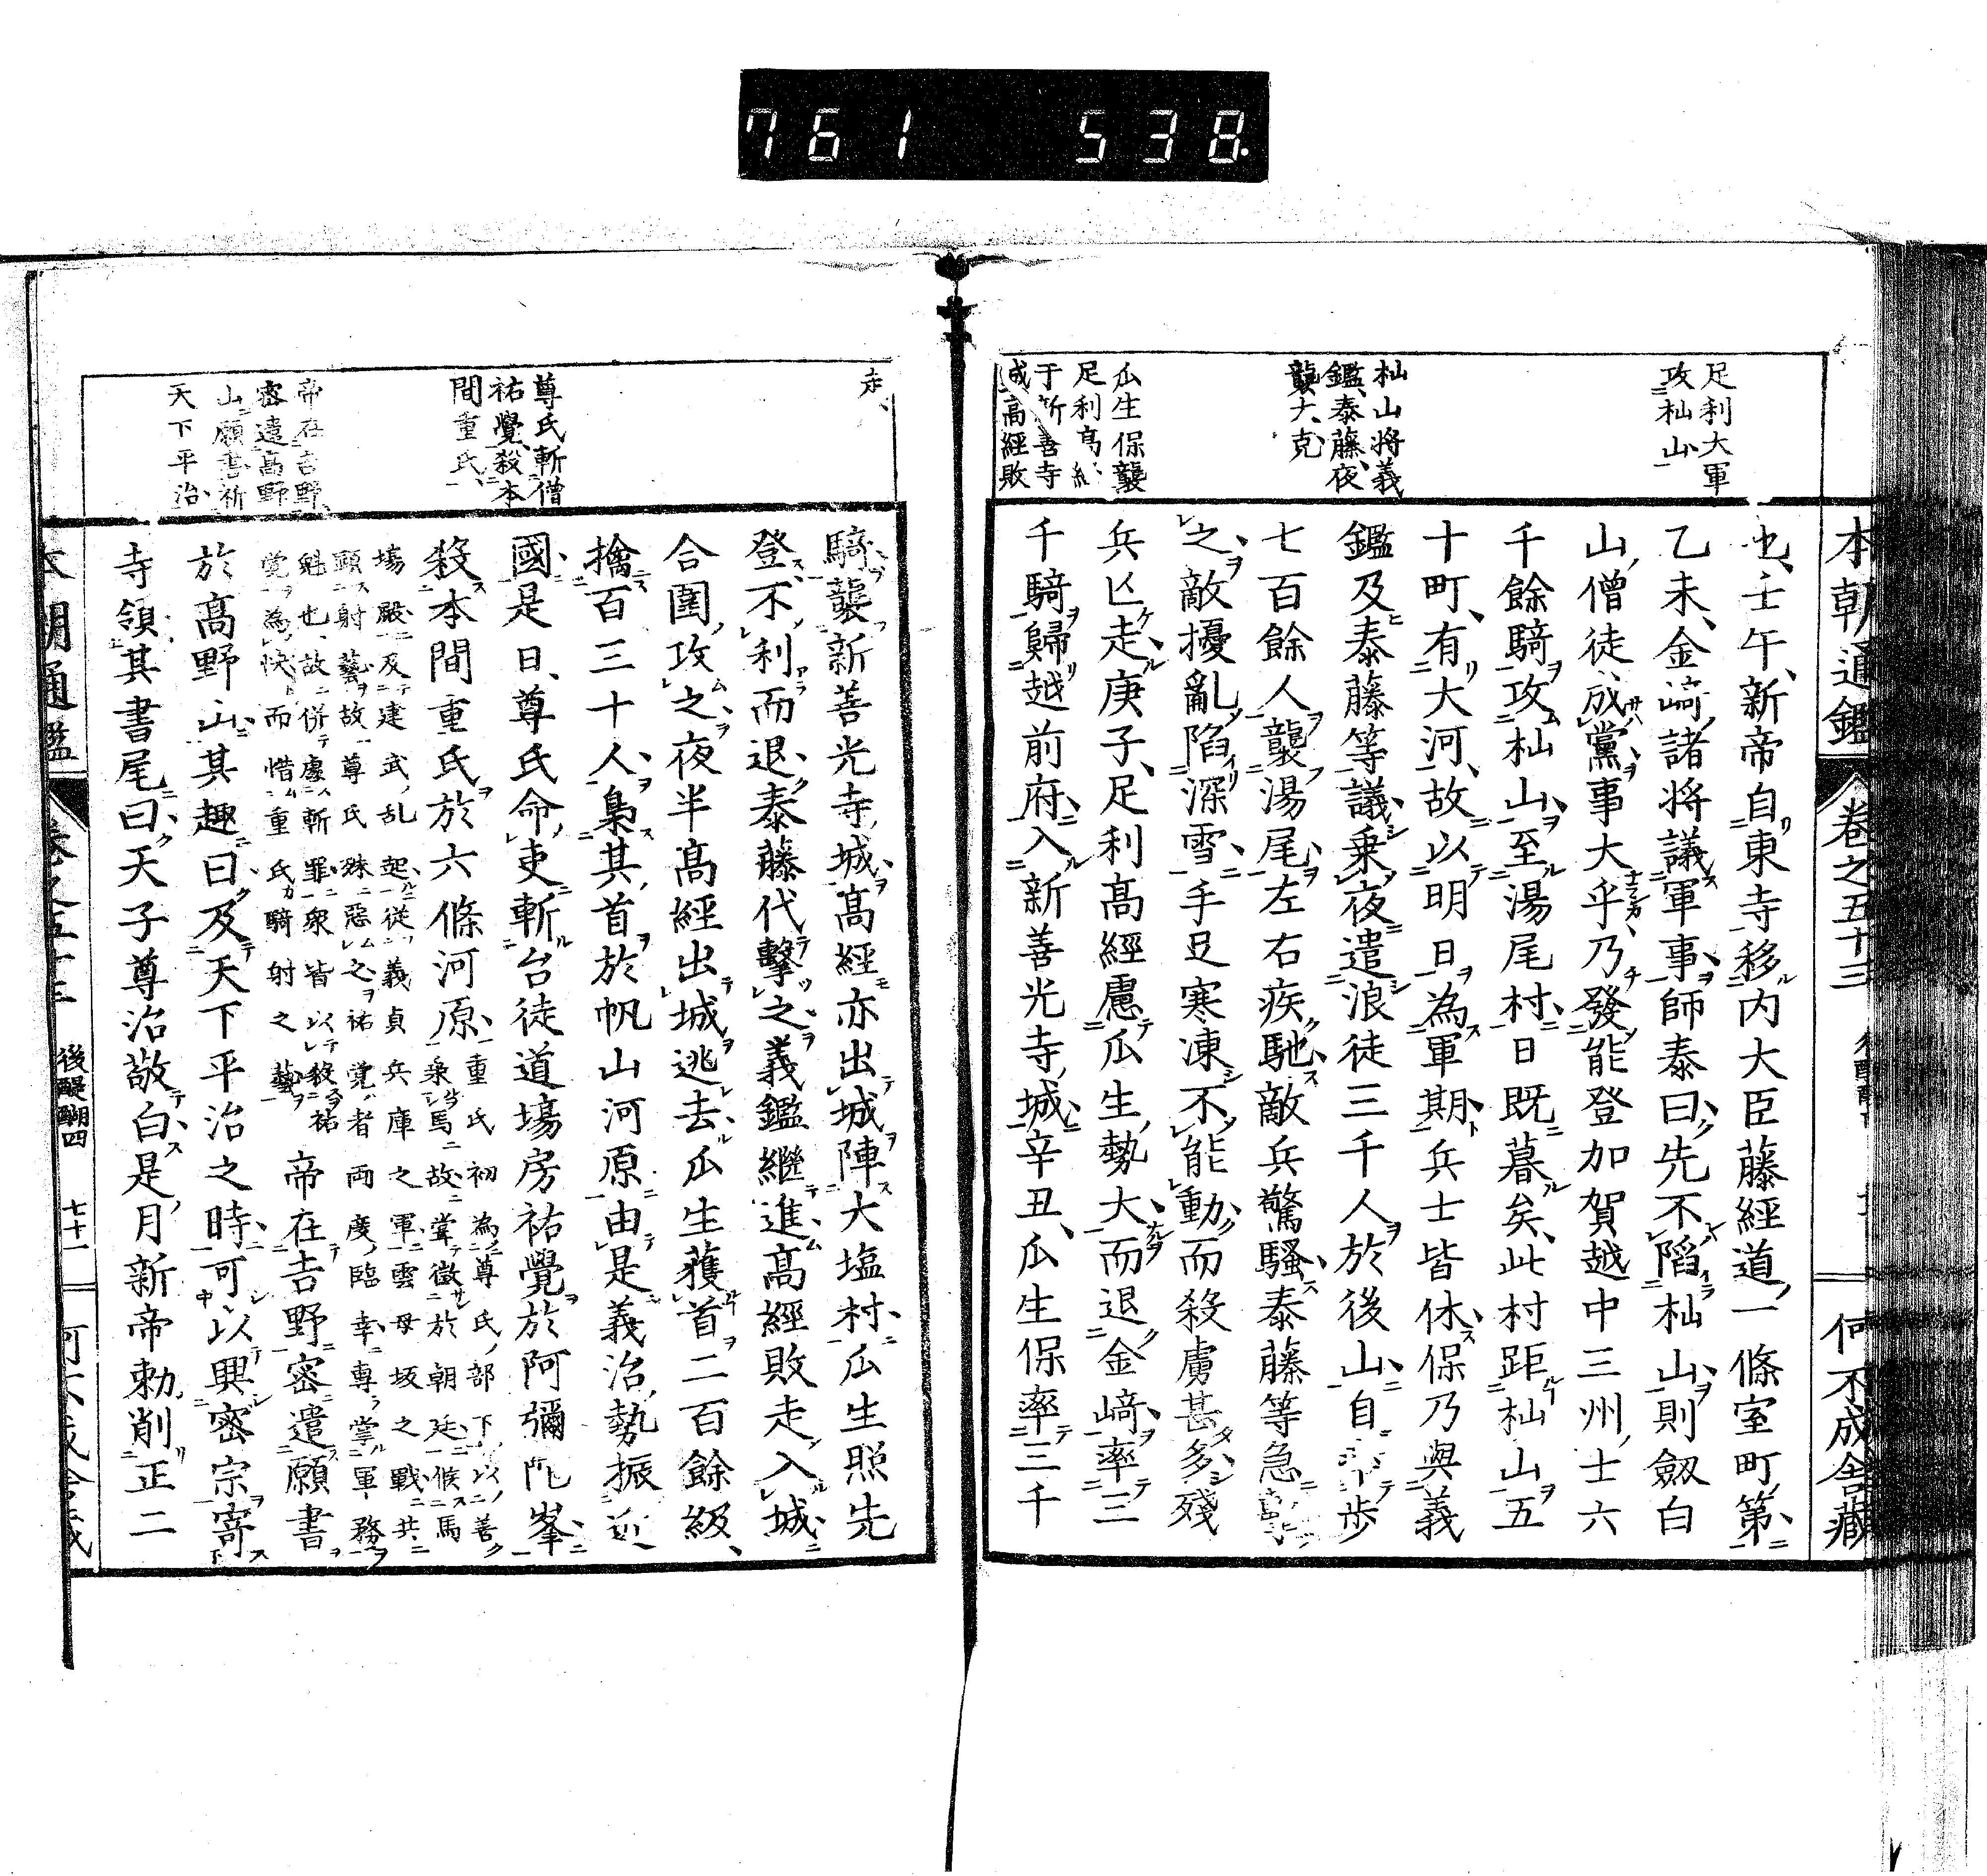 761 538.
本朝通鑑 卷之五十三 何不成舍藏
足利大軍
攻杣山
杣山將義
鑑泰藤夜
襲大克
瓜生保襲
足利高經
于新善寺
城高經敗
也壬午新帝自東寺移内大臣藤經道一條室町第
乙未金﨑諸将議軍事師泰曰先不陷杣山則劔白
山僧徒成黨事大乎乃發能登加賀越中三州士六
千餘騎攻杣山至湯尾村日既暮矣此村距杣山五
十町有大河故以明日為軍期兵士皆休保乃與義
鑑及泰藤等議乗夜遣浪徒三千人於後山自率歩
七百餘人襲湯尾左右疾馳敵兵驚騒泰藤等急擊
之敵擾亂陷深雪手足寒凍不能動而殺虜甚多殘
兵亾走庚子足利髙經慮瓜生勢大而退金﨑率三
千騎歸越前府入新善光寺城辛丑瓜生保率三千
走
尊氏斬僧
祐覺殺本
間重氏
帝在吉野
密遣高野
山願書祈
天下平治
騎襲新善光寺城髙經亦出城陣大塩村瓜生照先
登不利而退泰藤代擊之義鑑繼進髙經敗走入城
合圍攻之夜半髙經出城逃去瓜生獲首二百餘級
擒百三十人梟其首於帆山河原由是義治勢振近
國是日尊氏命吏斬台徒道場房祐覺於阿彌陀峯
殺本間重氏於六條河原重氏初為尊氏部下以善
乗馬故嘗徵於朝廷候馬
場殿及建武乱起從義貞兵庫之軍雲母坂之戰共
顕射藝故尊氏殊惡之祐覚者両度臨幸專掌軍務
魁也故併處斬罪衆皆以殺祐
覚為快而惜重氏騎射之藝帝在吉野密遣願書
於髙野山其趣曰及天下平治之時可以興密宗寄
寺領其書尾曰天子尊治敬白是月新帝勅削正二
本朝通鑑 卷之五十三 後醍醐四 七十一 何不成舍藏